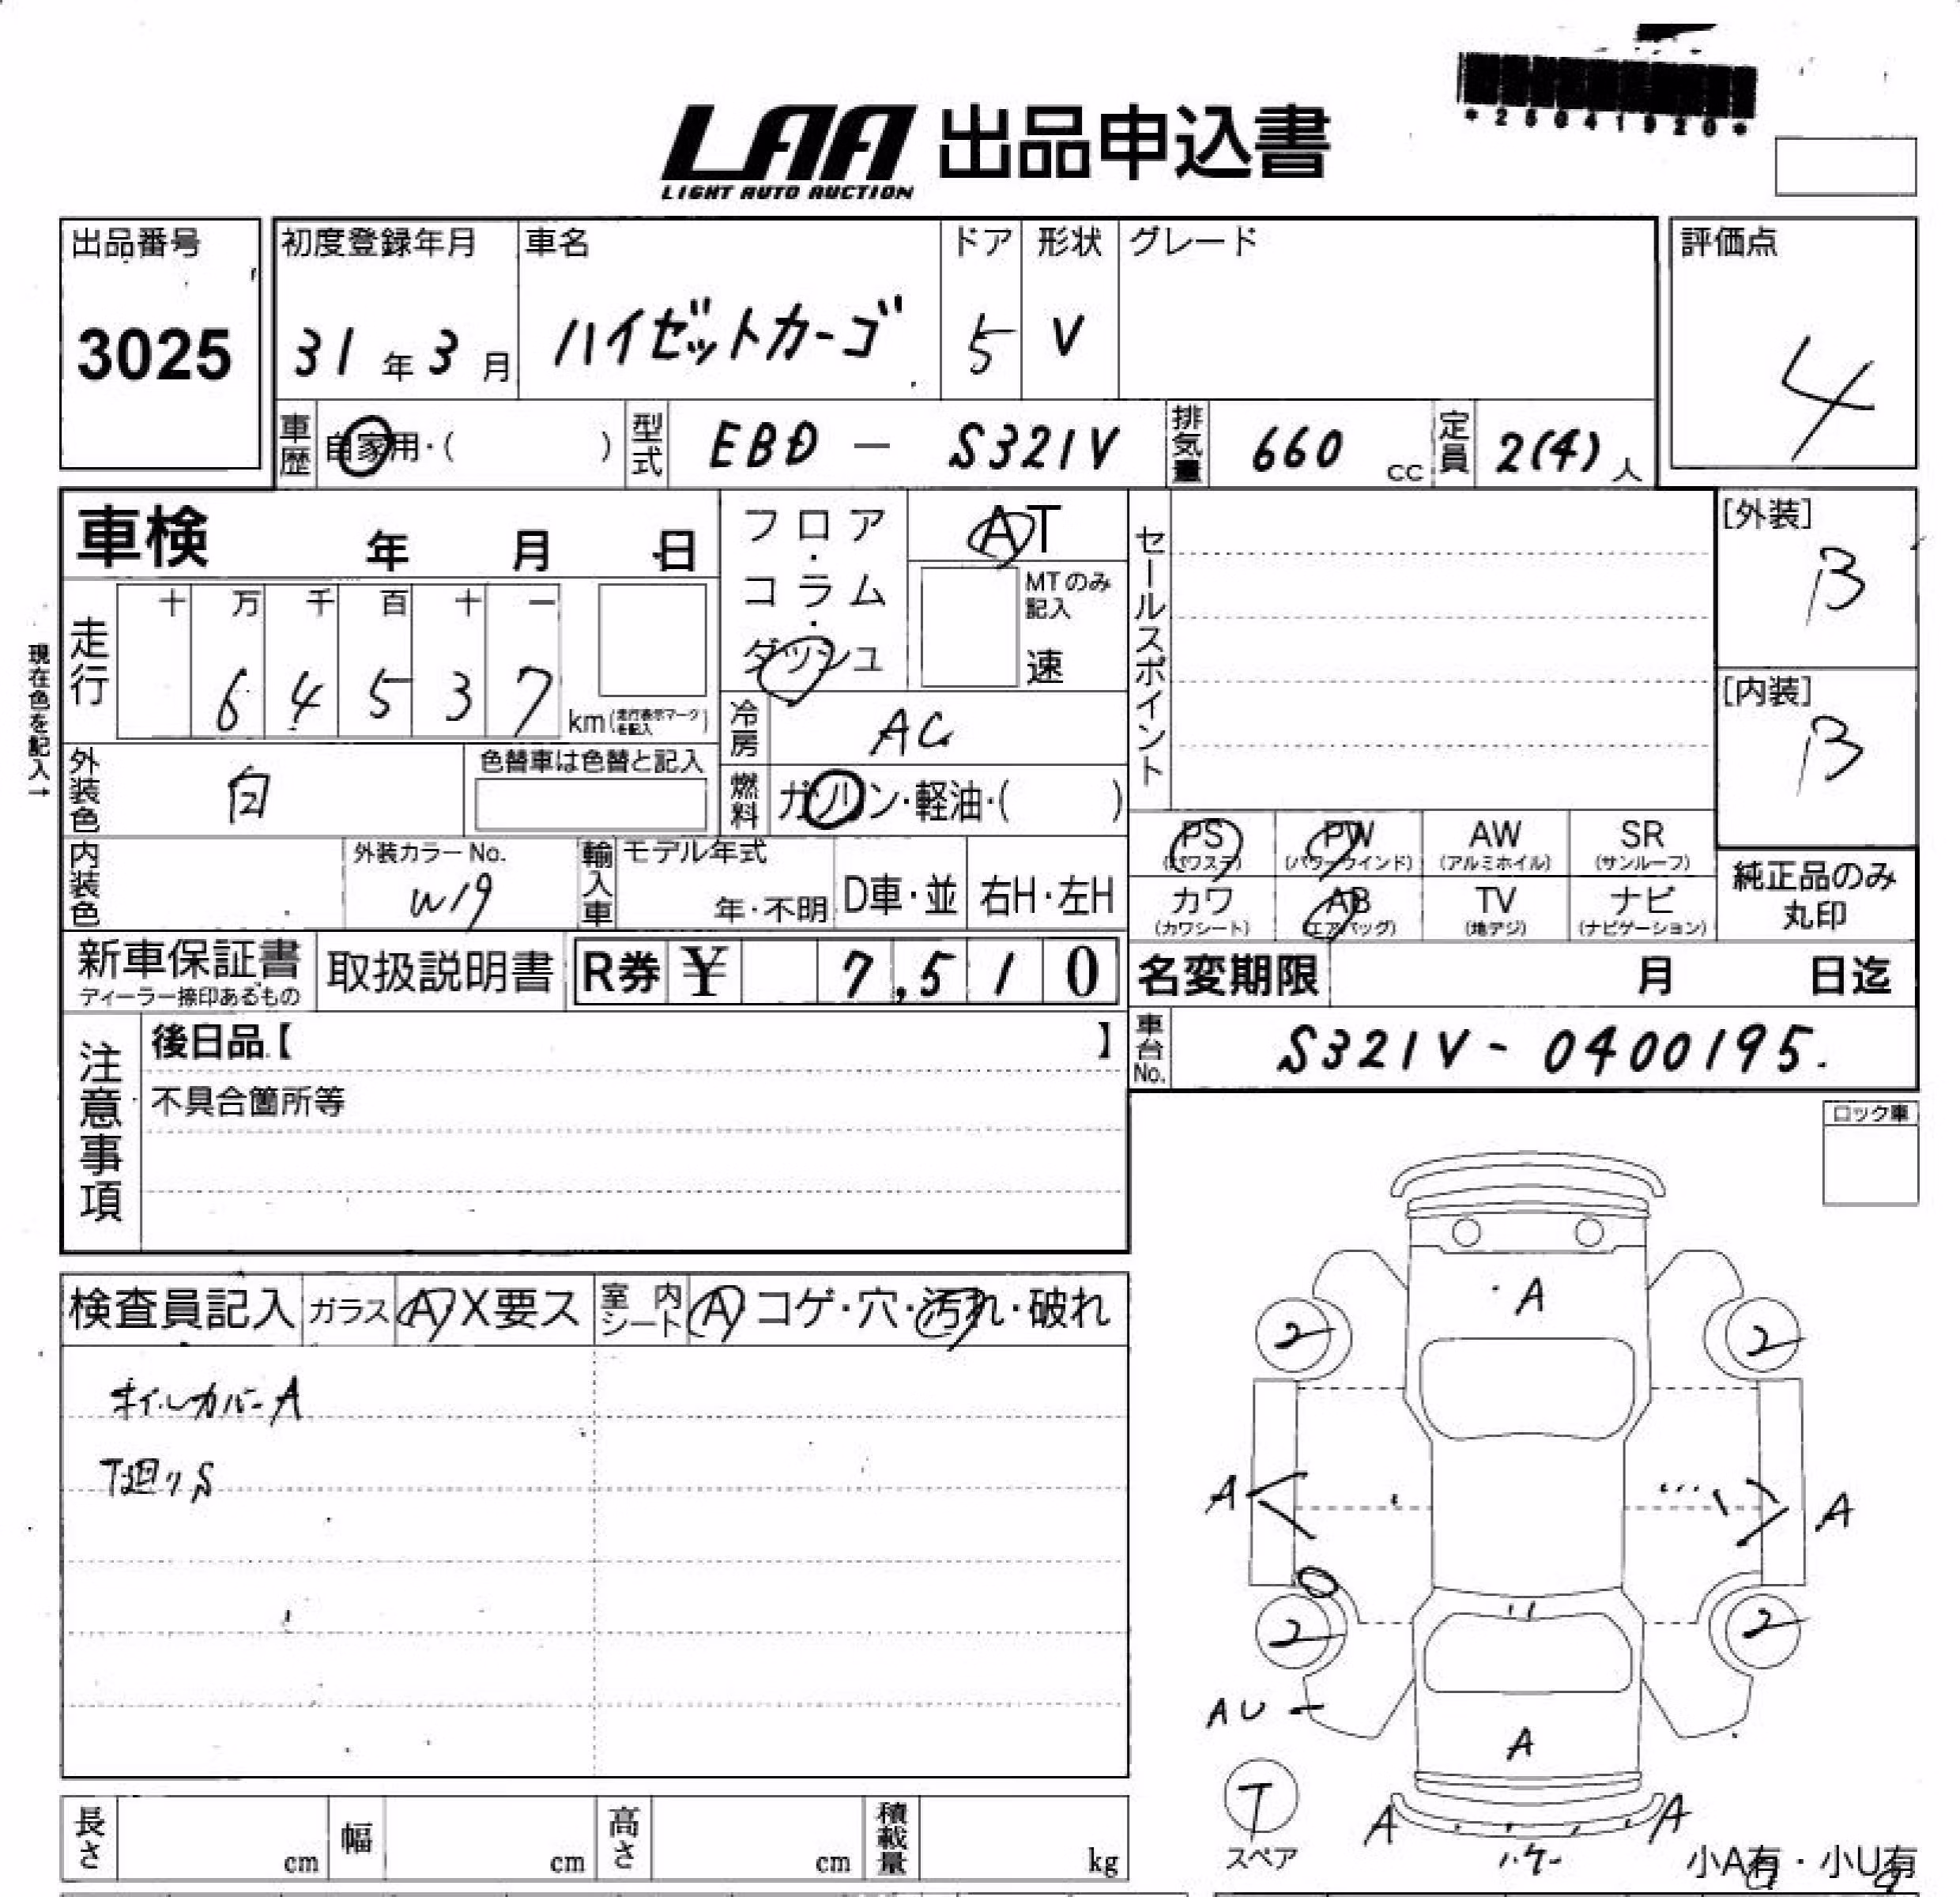 *25041920*
LAA 出品申込書
LIGHT AUTO AUCTION
出品番号 初度登録年月 車名 ドア 形状 グレード 評価点
3025 31年3月 ハイゼットカーゴ 5 V 4
車歴 自家用・( ) 型式 EBD - S321V 排気量 660 cc 定員 2(4)人
車検 年 月 日 フロア・コラム・ダッシュ AT セールスポイント [外装]
B
MTのみ記入
速
走行 十 万 千 百 十 一
6 4 5 3 7 km(走行表示マークを記入)
[内装]
B
現在色を記入→
冷房 AC
外装色 白 色替車は色替と記入 燃料 ガソリン・軽油・( )
PS (パワステ) PW (パワーウインド) AW (アルミホイル) SR (サンルーフ)
内装色 外装カラーNo. W19 輸入車 モデル年式 年・不明 D車・並 右H・左H
カワ (カワシート) AB (エアバッグ) TV (地デジ) ナビ (ナビゲーション)
純正品のみ
丸印
新車保証書 取扱説明書 R券 ¥ 7,510 名変期限 月 日迄
ディーラー捺印あるもの
注意事項 後日品【 】 車台No. S321V-0400195.
不具合箇所等
ロック車
検査員記入 ガラス A X要ス 室内シート A コゲ・穴・汚れ・破れ
ホイールカバーA
下廻りS
A
2 2
A A
2 2
AU
A
T
スペア
A A
小A有・小U有
長さ cm 幅 cm 高さ cm 積載量 kg